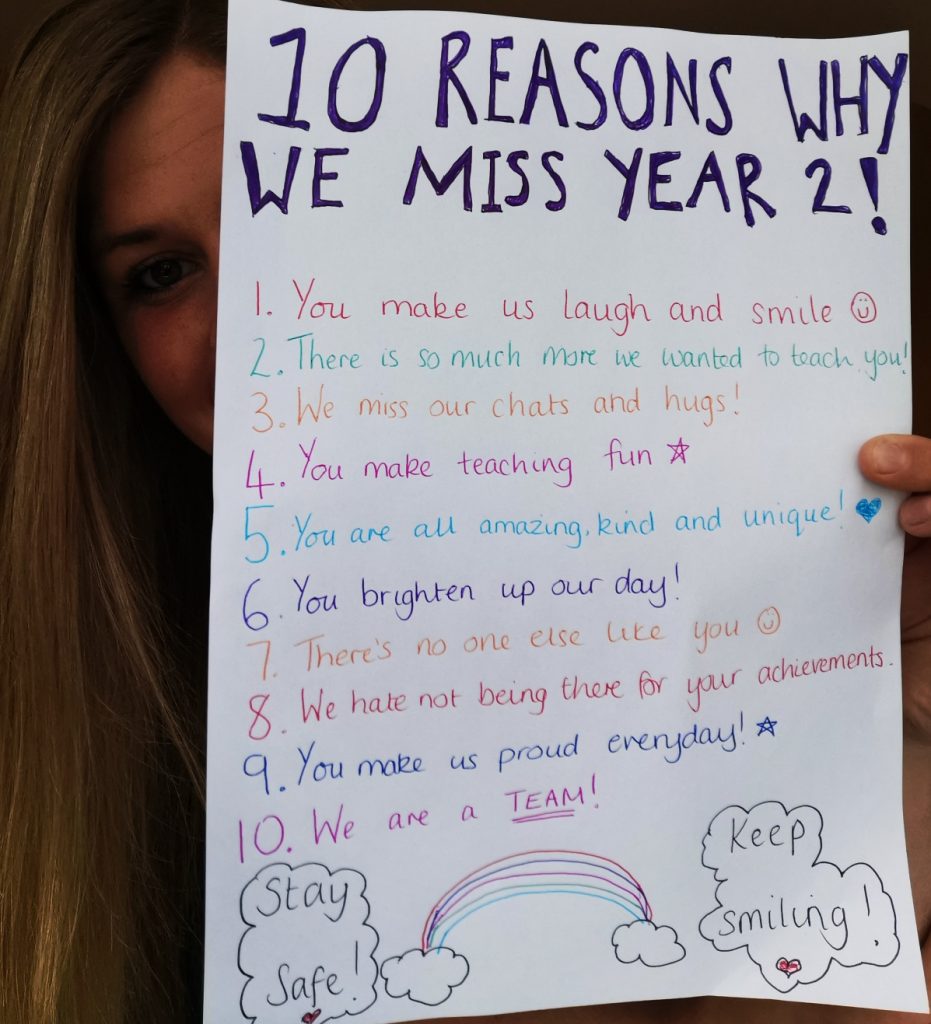 10 REASONS WHY
WE MISS YEAR 2!
1. You make us laugh and smile
2. There is so much more we wanted to teach you!
3. We miss our chats and hugs!
4. You make teaching fun
5. You are all amazing, kind and unique!
6. You brighten up our day!
7. There's no one else like you
8. We hate not being there for your achievements.
9. You make us proud everyday!
10. We are a TEAM!
Stay
Safe!
Keep
Smiling!